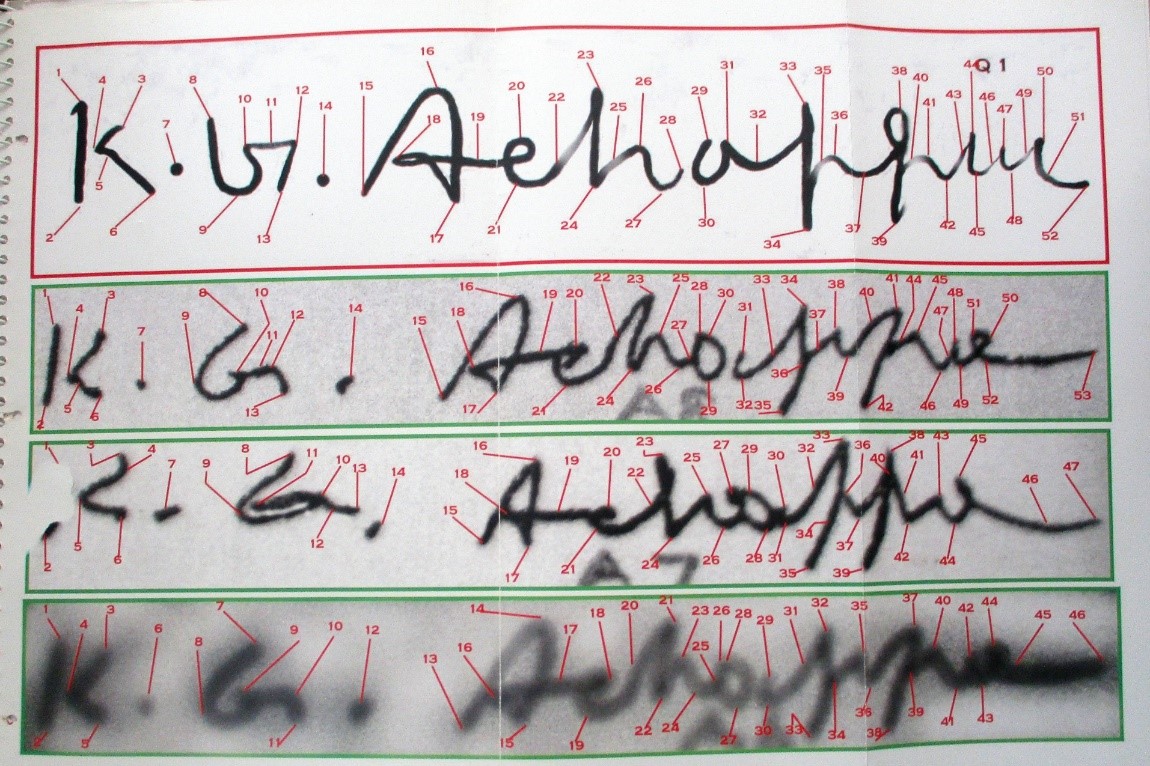 1 4 3 7 8 10 11 12 14 15 16 18 19 20 22 23 25 26 28 29 31 32 33 35 36 38 40 41 43 44 Q1 46 47 49 50 51
K. G. Achappa
2 5 6 9 13 17 21 24 27 30 34 37 39 42 45 48 52
1 4 3 7 8 9 10 11 12 14 15 16 18 19 20 22 23 25 27 28 30 31 33 34 37 38 40 41 44 45 47 48 51 50
K. G. Achappa
2 5 6 13 17 21 24 26 29 32 35 36 39 42 46 49 52 53
A8
1 3 4 7 9 8 11 10 13 14 15 16 18 19 20 22 23 25 27 29 30 32 33 36 40 38 41 43 45 46 47
K. G. Achappa
2 5 6 12 17 21 24 26 28 31 34 35 37 39 42 44
A7
1 4 3 6 7 8 9 10 12 13 14 16 17 18 20 21 23 25 26 28 29 31 32 35 37 40 42 44 45 46
K. G. Achappa
2 5 11 15 19 22 24 27 30 33 34 36 38 39 41 43